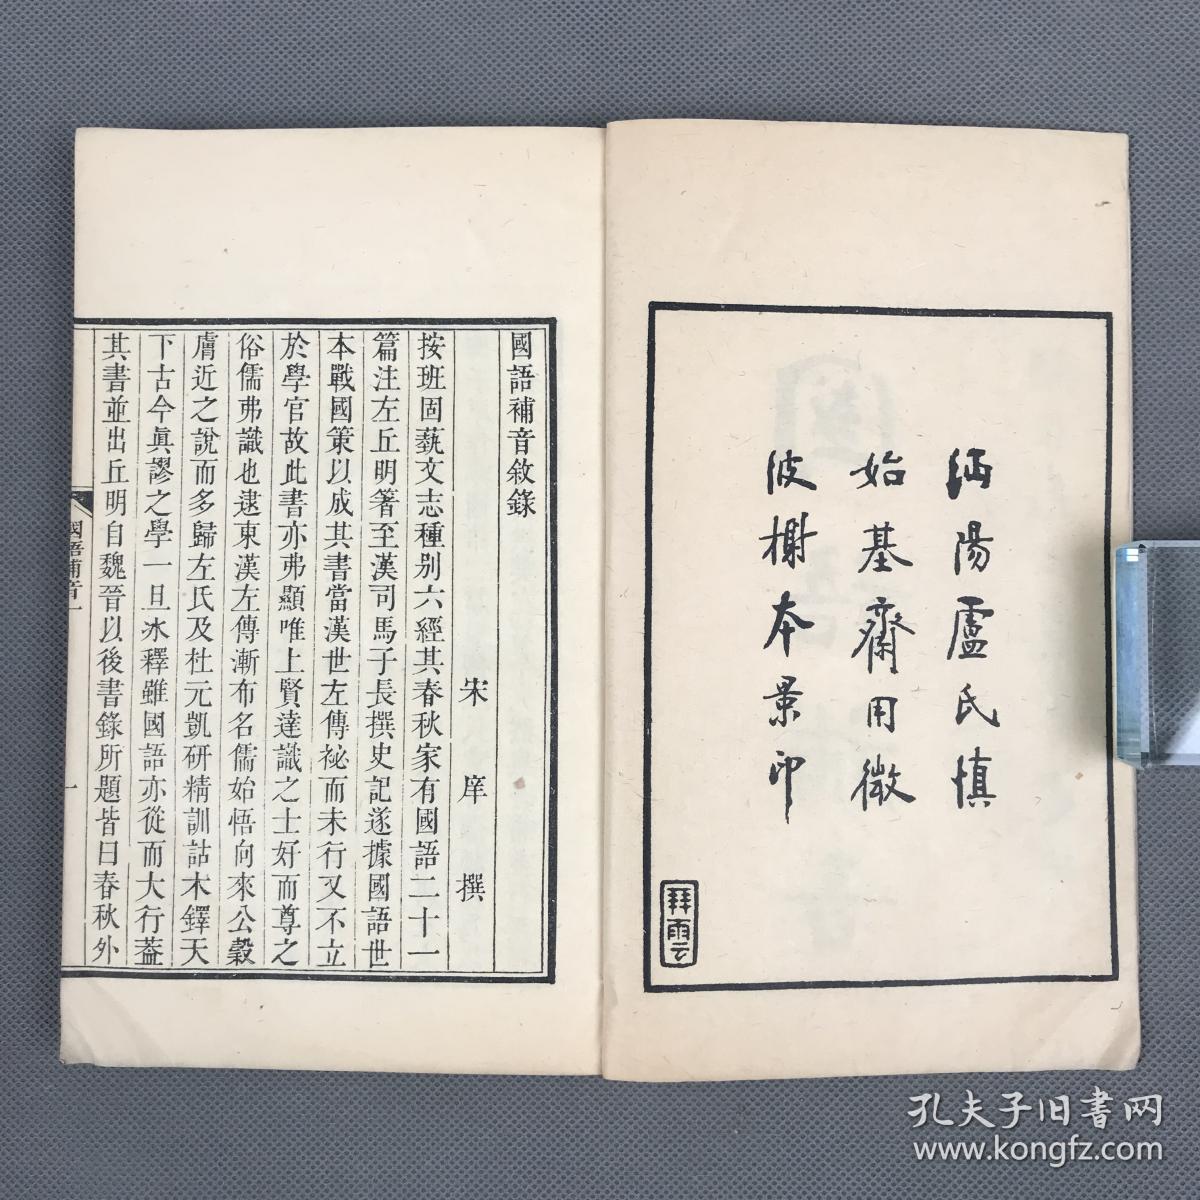 沔陽盧氏慎
始基齋用微
波榭本景印
國語補音敘錄
宋庠撰
按班固蓺文志種别六經其春秋家有國語二十一
篇注左丘明著至漢司馬子長撰史記遂據國語世
本戰國策以成其書當漢世左傳祕而未行又不立
於學官故此書亦弗顯唯上賢達識之士好而尊之
俗儒弗識也逮東漢左傳漸布名儒始悟向來公穀
膚近之說而多歸左氏及杜元凱研精訓詁木鐸天
下古今眞謬之學一旦冰釋雖國語亦從而大行葢
其書並出丘明自魏晉以後書錄所題皆曰春秋外
國語補音一
一
孔夫子旧书网
www.kongfz.com